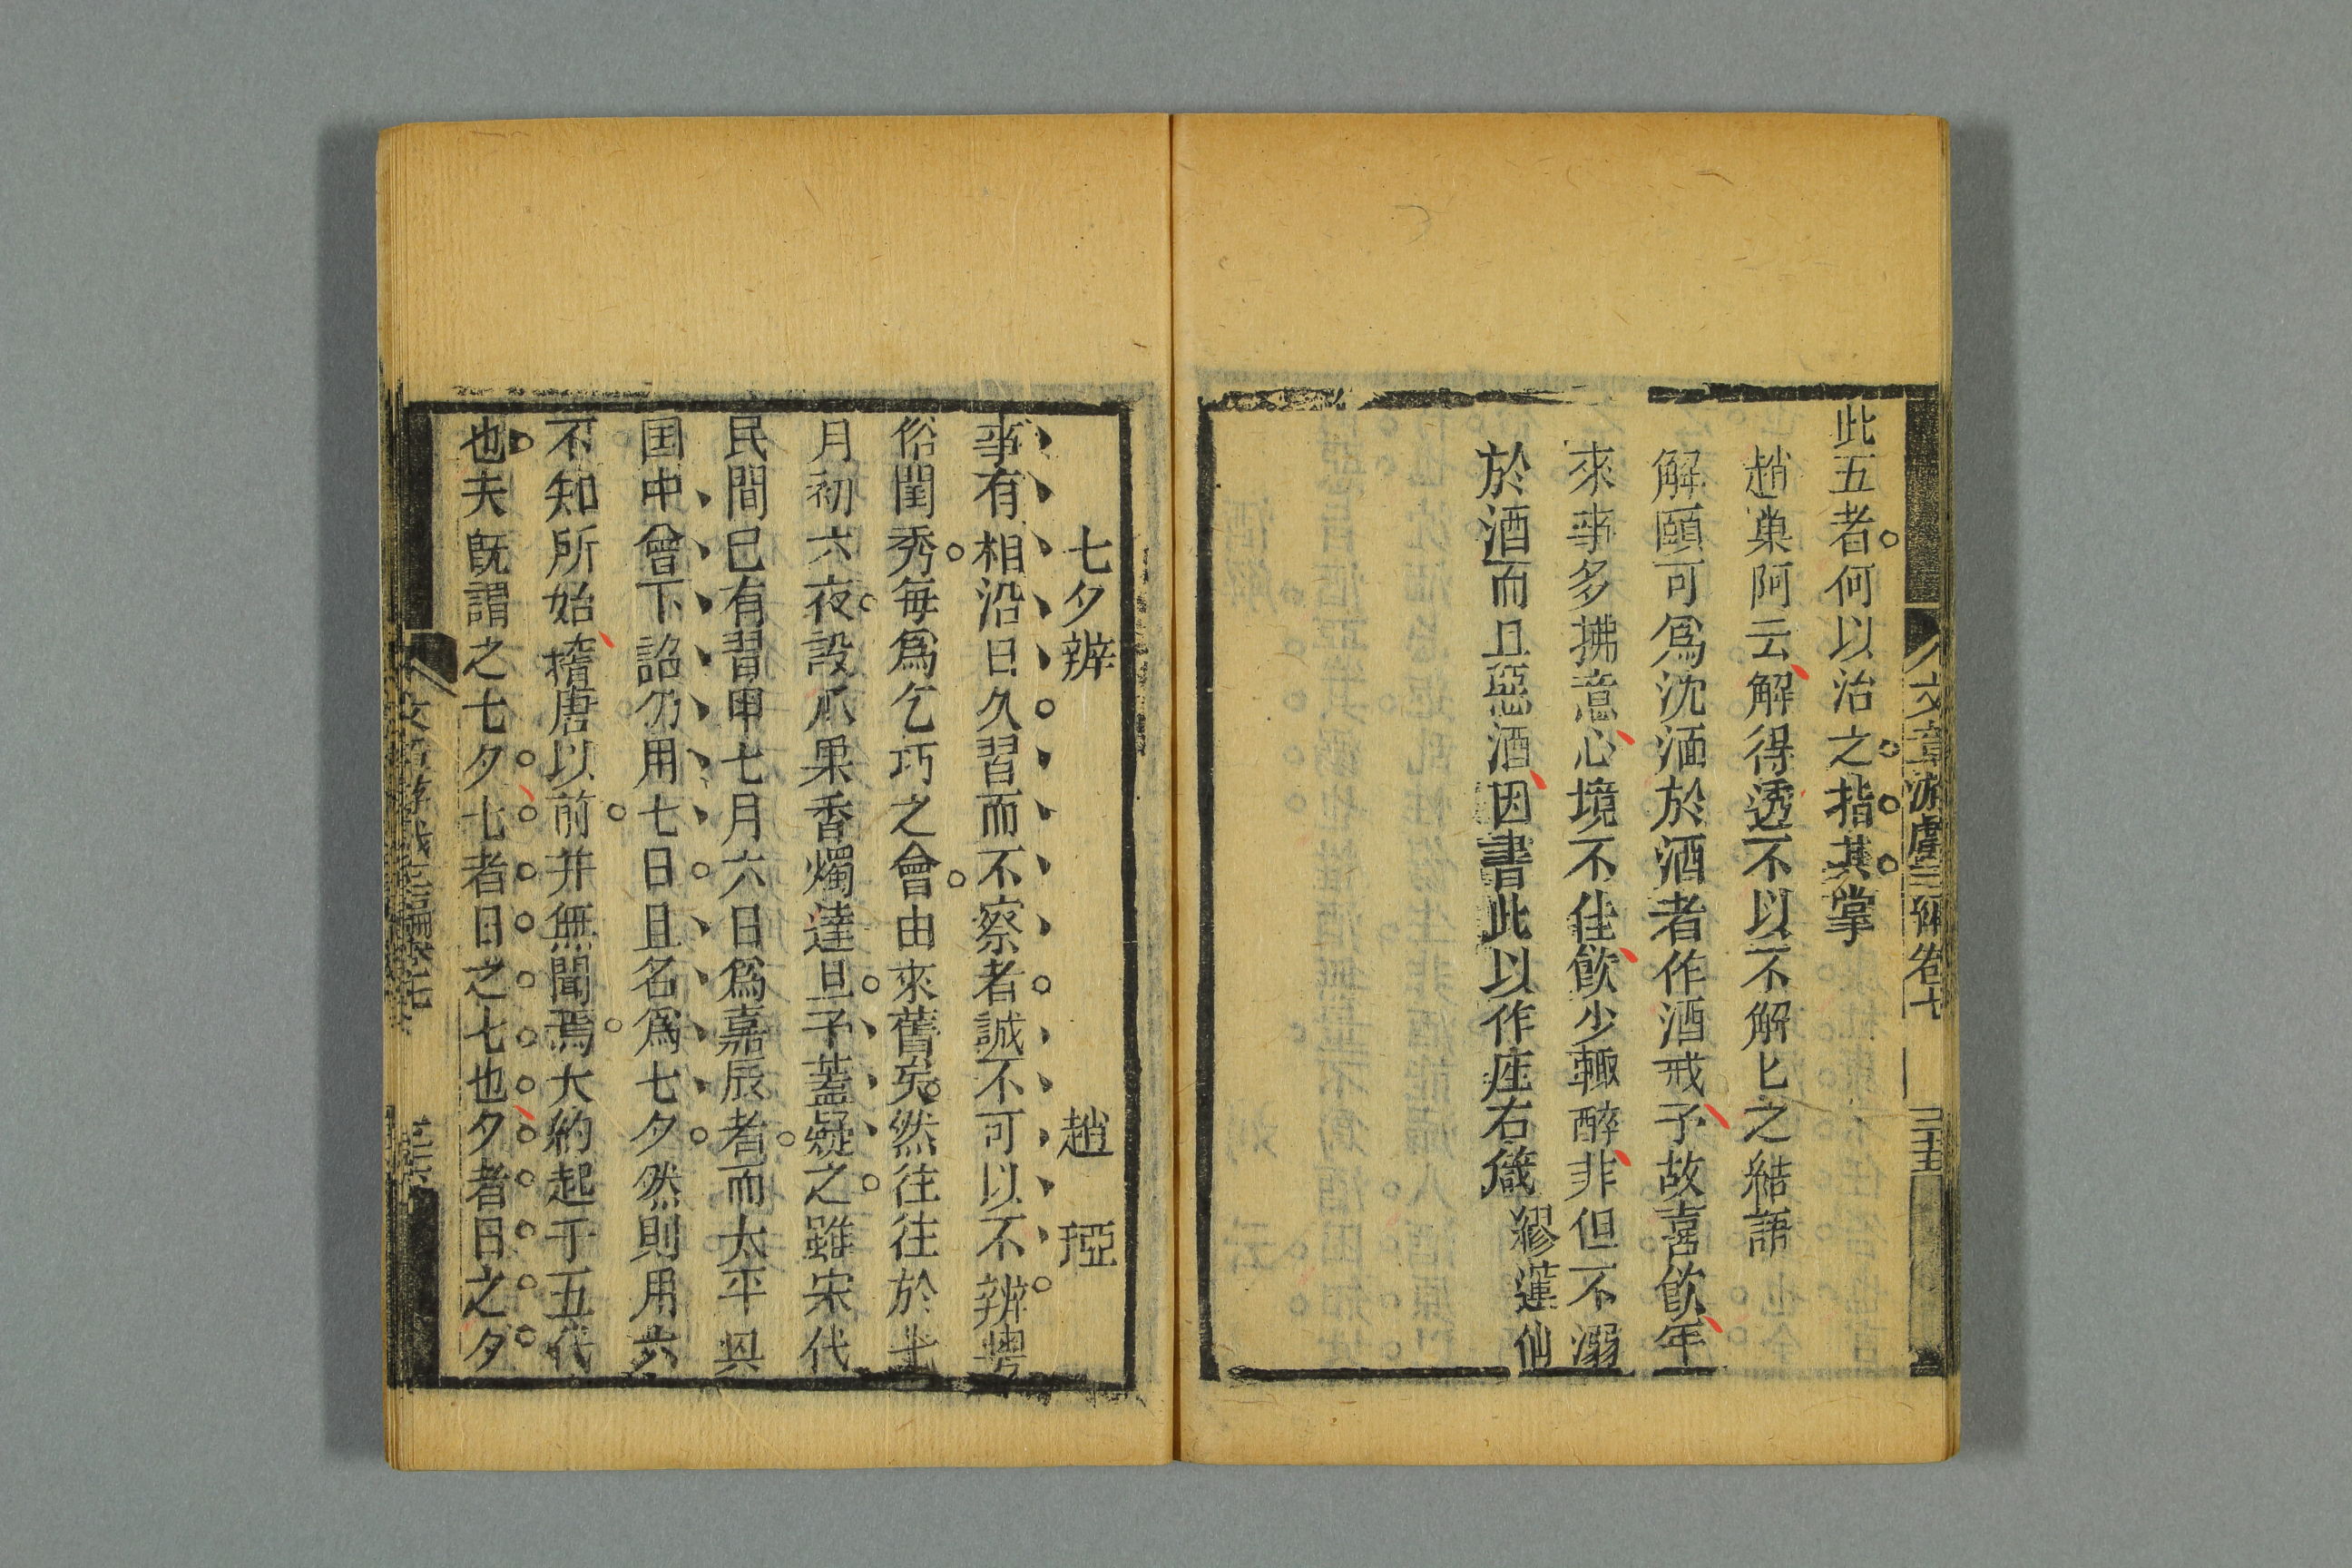 此五者何以治之指其掌
趙菓阿云解得透不以不解匕之結語
解頤可爲沈湎於酒者作酒戒予故喜飲年
來事多拂意心境不佳飲少輙醉非但不溺
於酒而且惡酒因書此以作座右箴 繆蓮仙
七夕辨 趙 瑝
事有相沿日久習而不察者誠不可以不辨粤
俗閨秀每爲乞巧之會由來舊矣然往往於七
月初六夜設瓜果香燭達旦予蓋疑之雖宋代
民間已有習用七月六日爲嘉辰者而太平興
国中曾下詔仍用七日且名爲七夕然則用六
不知所始隋唐以前并無聞焉大約起于五代
也夫既謂之七夕七者日之七也夕者日之夕